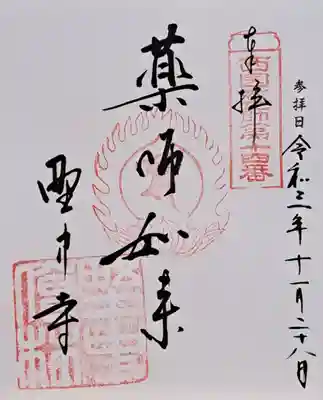 参拝日 令和三年十一月二十八日
奉拝
西国薬師第十四番
薬師如来
野中寺